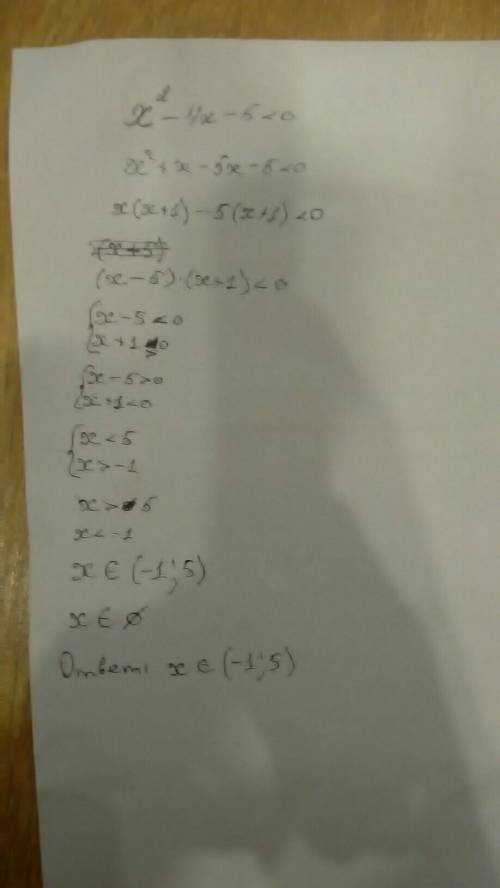 x² - 4x - 5 < 0
x² + x - 5x - 5 < 0
x(x+1) - 5(x+1) < 0
(x+5)
(x-5)·(x+1) < 0
{x - 5 < 0
{x + 1 > 0
{x - 5 > 0
{x + 1 < 0
{x < 5
{x > -1
x > 5
x < -1
x ∈ (-1; 5)
x ∈ ∅
Ответ: x ∈ (-1; 5)